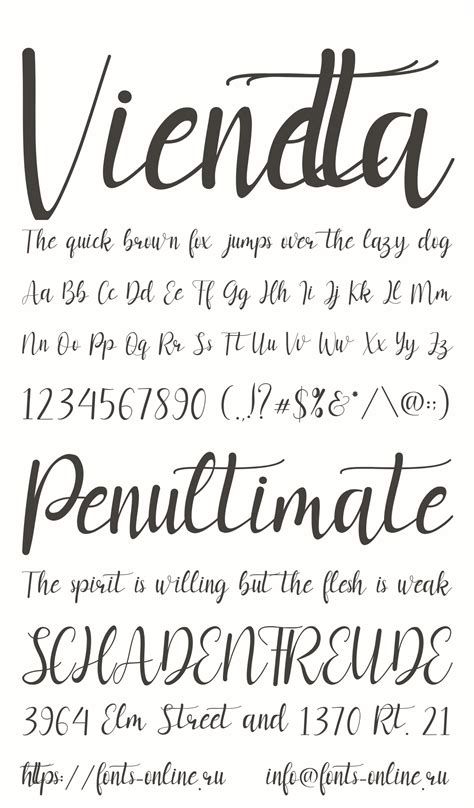 Viendta
The quick brown fox jumps over the lazy dog
Aa Bb Cc Dd Ee Ff Gg Hh Ii Jj Kk Ll Mm
Nn Oo Pp Qq Rr Ss Tt Uu Vv Ww Xx Yy Zz
1234567890 (.,!?#$%&*/\@:;)
Penultimate
The spirit is willing but the flesh is weak
SCHADENFREUDE
3964 Elm Street and 1370 Rt. 21
https://fonts-online.ru info@fonts-online.ru